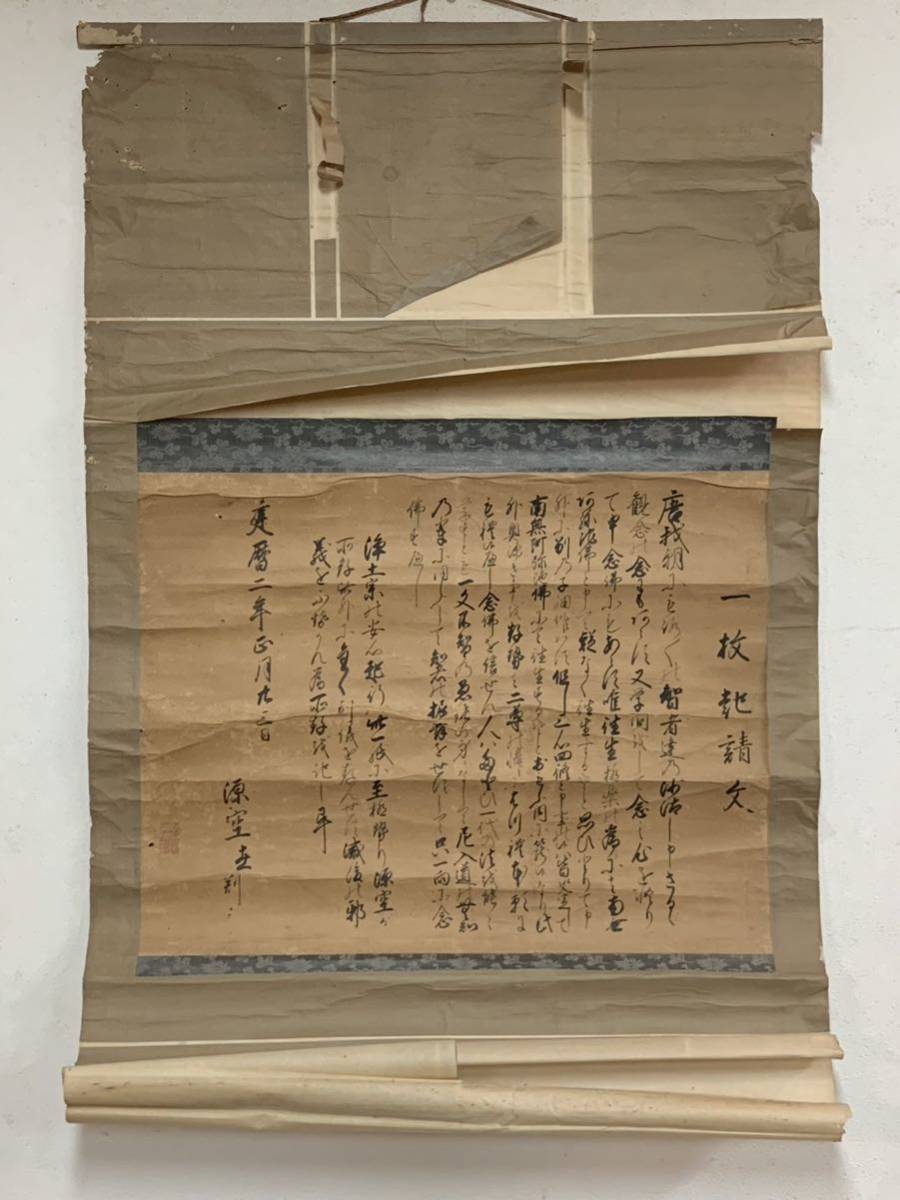 一枚起請文
唐我朝にもろ〳〵の智者達の沙汰し申さるゝ
観念の念にもあらす又学問をして念の心を悟り
て申念佛にもあらす唯往生極楽の為にハ南無
阿弥陀佛と申て疑なく往生するそと思ひとりて申
外に別の子細候ハす但し三心四修と申事の候ハ皆決定して
南無阿弥陀佛にて往生するそと思ふ内に篭り候なり此
外に奥ふかき事を存せハ二尊の憐にはつれ本願に
もれ候へし念佛を信せん人ハたとひ一代の法を能〳〵
学すとも一文不智の愚鈍の身になして尼入道の無知
の輩に同しくして智者の振舞をせすして只一向に念
佛すへし
浄土宗の安心起行此一紙に至極せり源空か
所存此外に全く別儀を存せす滅後の邪
義をふせかん為所存を記し畢
建暦二年正月廿三日
源空在判